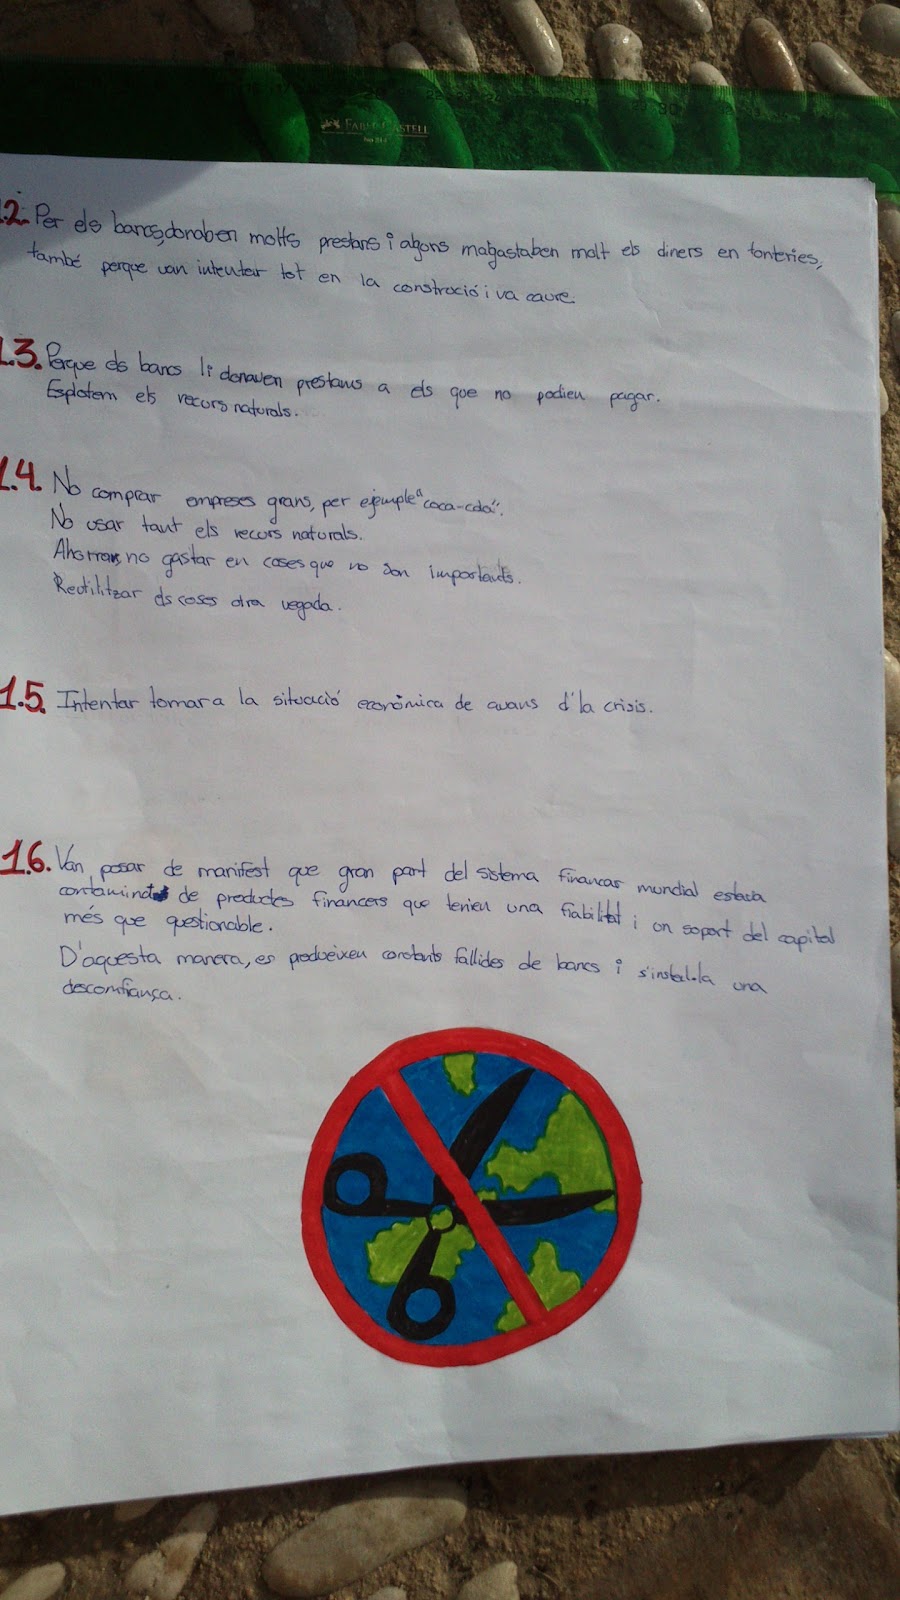 FABER-CASTELL
1.2. Per els bancs, donaben molts prestams i algons malgastaben molt els diners en tonteries,
també perque van intentar tot en la construcció i va caure.
1.3. Perque els bancs li donaven prestams a els que no podien pagar.
Esplotem els recurs naturals.
1.4. No comprar empreses grans, per ejemple "coca-cola".
No usar tant els recurs naturals.
Ahorrar, no gastar en coses que no son importants.
Reutilitzar els coses otra vegada.
1.5. Intentar tornar a la situació econômica de avans d'la crisis.
1.6. Van posar de manifest que gran part del sistema financar mundial estava
de productes financers que tenien una fiabilitat i un soport del capital
més que questionable.
D'aquesta manera, es produeixen constants fallides de bancs i s'instal.la una
descomfiança.